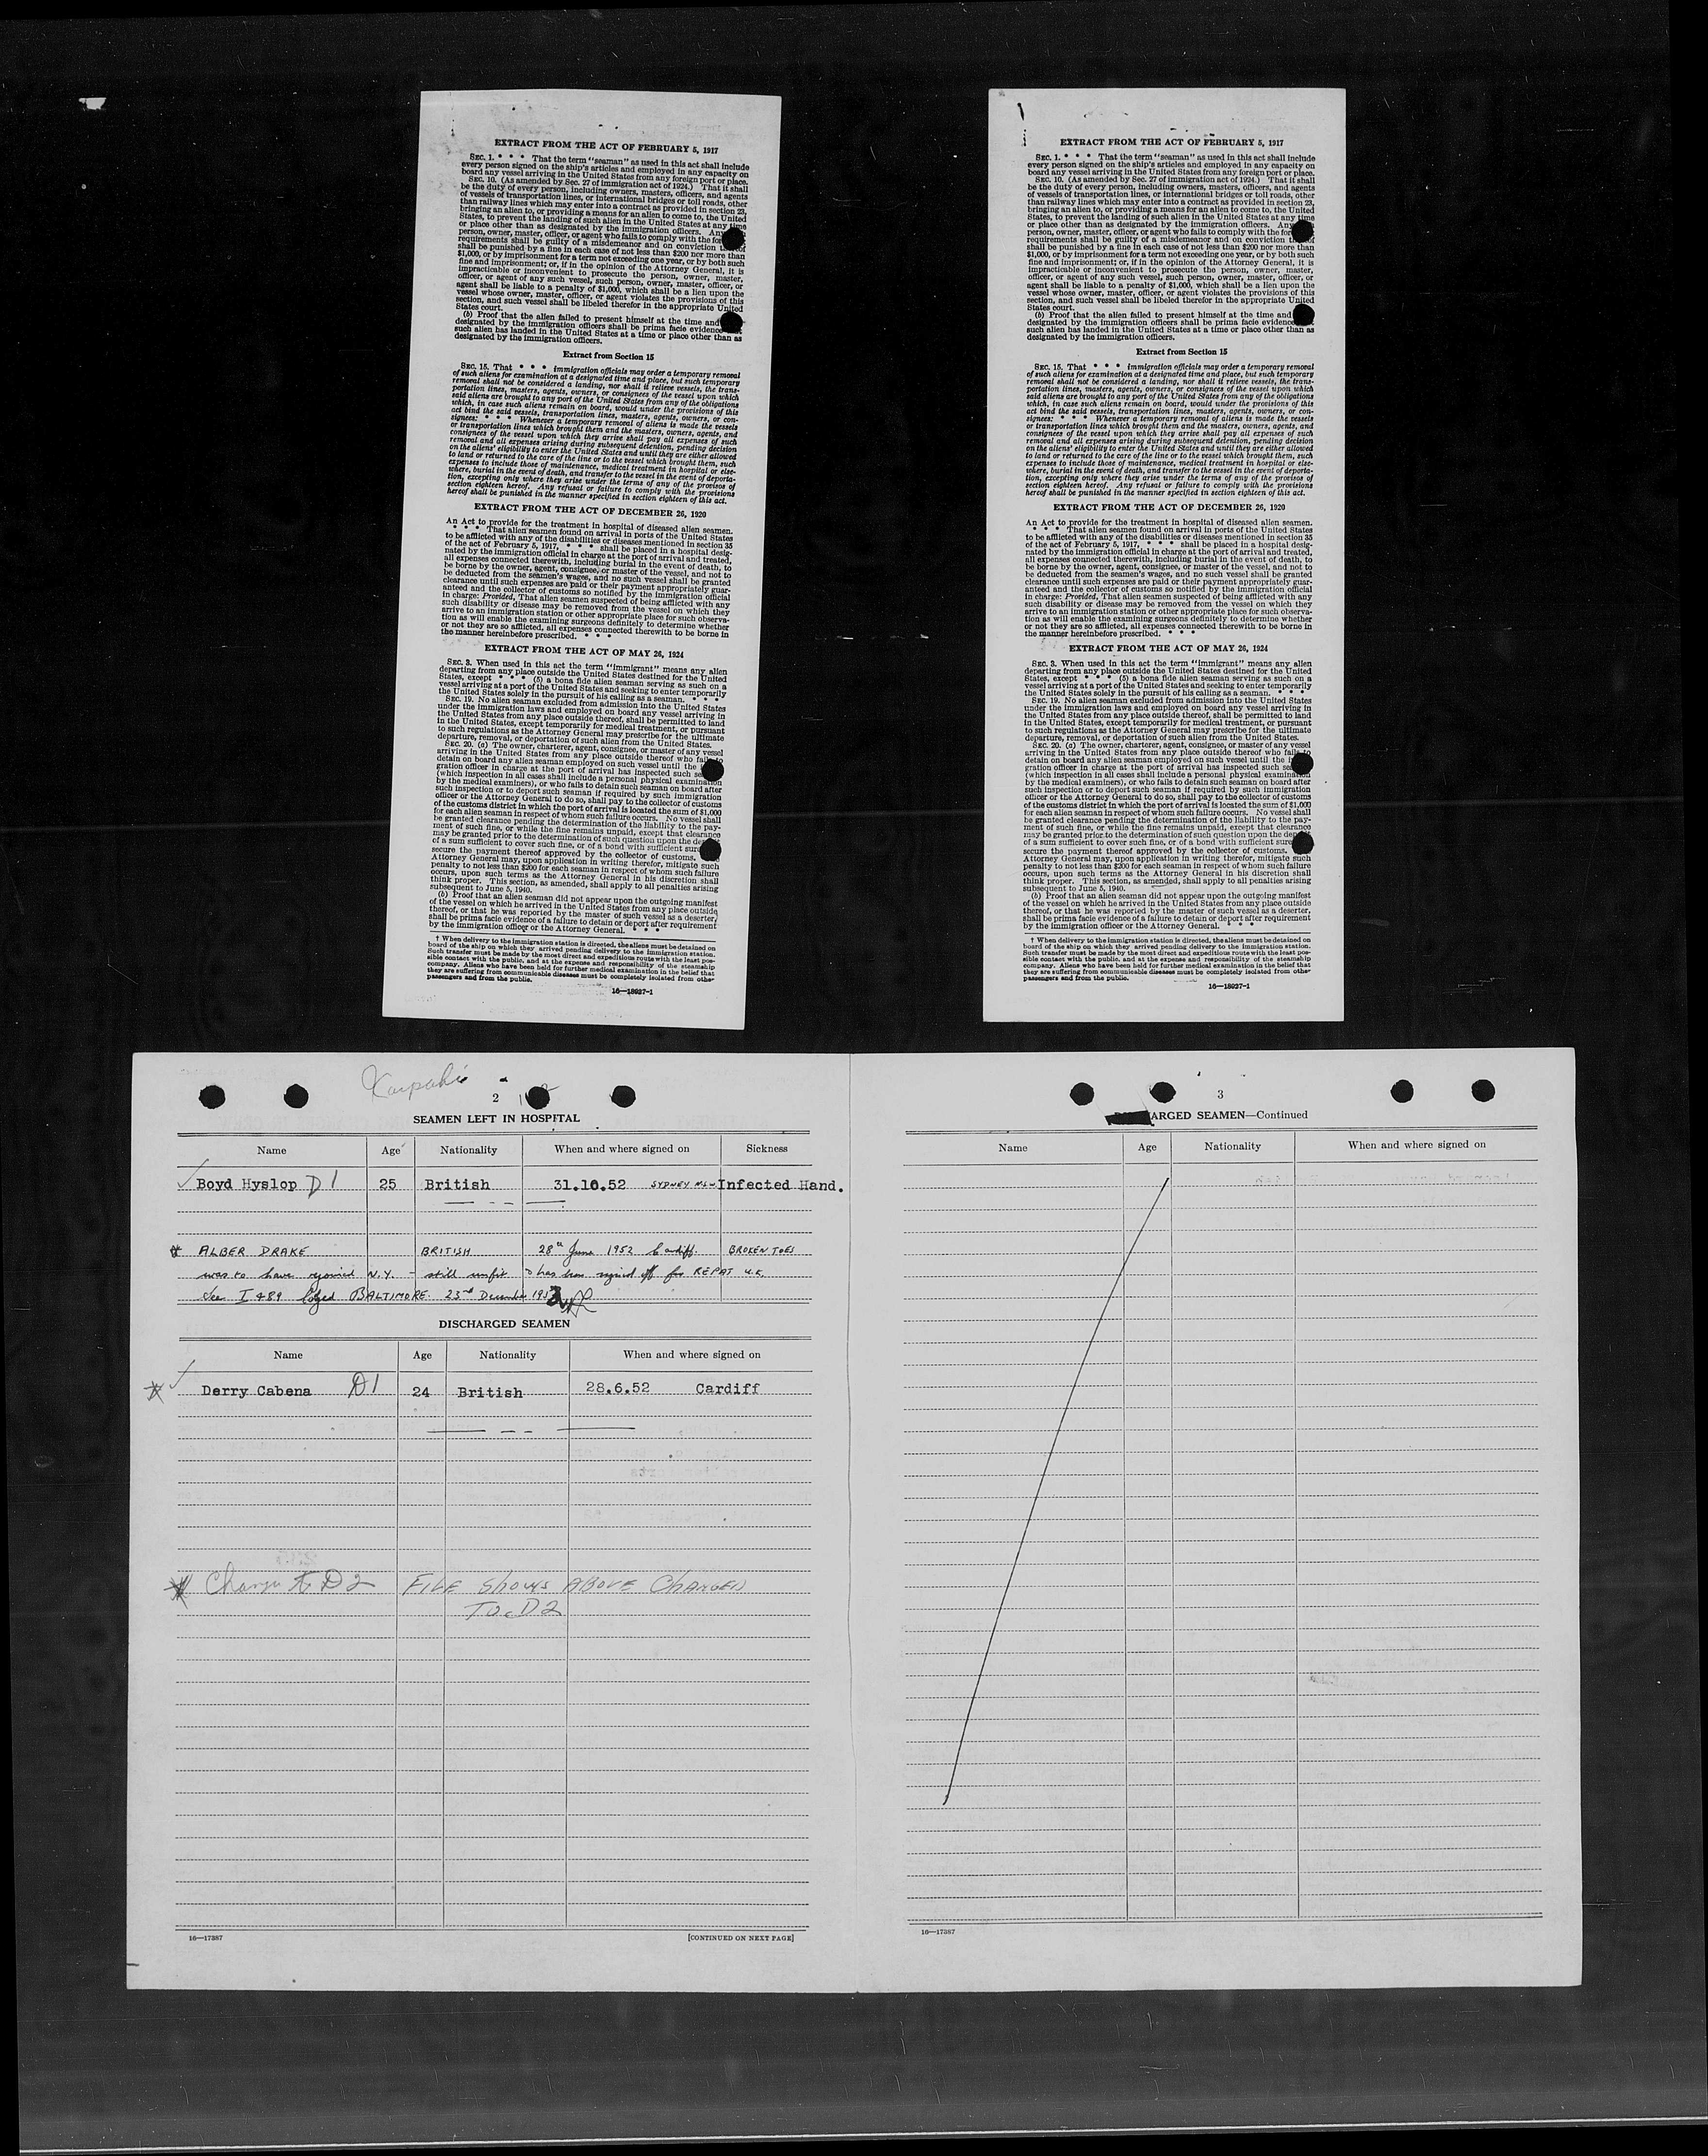 EXTRACT FROM THE ACT OF FEBRUARY 5, 1917
SEC. 1. * * * That the term "seaman" as used in this act shall include
every person signed on the ship's articles and employed in any capacity on
board any vessel arriving in the United States from any foreign port or place.
SEC. 10. (As amended by Sec. 27 of immigration act of 1924.) That it shall
be the duty of every person, including owners, masters, officers, and agents
of vessels of transportation lines, or international bridges or toll roads, other
than railway lines which may enter into a contract as provided in section 23,
bringing an alien to, or providing a means for an alien to come to, the United
States, to prevent the landing of such alien in the United States at any time
or place other than as designated by the immigration officers. Any
person, owner, master, officer, or agent who fails to comply with the
requirements shall be guilty of a misdemeanor and on conviction
shall be punished by a fine in each case of not less than $200 nor more than
$1,000, or by imprisonment for a term not exceeding one year, or by both such
fine and imprisonment; or, if in the opinion of the Attorney General, it is
impracticable or inconvenient to prosecute the person, owner, master,
officer, or agent of any such vessel, such person, owner, master, officer, or
agent shall be liable to a penalty of $1,000, which shall be a lien upon the
vessel whose owner, master, officer, or agent violates the provisions of this
section, and such vessel shall be libeled therefor in the appropriate United
States court.
(b) Proof that the alien failed to present himself at the time and
designated by the immigration officers shall be prima facie evidence
such alien has landed in the United States at a time or place other than as
designated by the immigration officers.
Extract from Section 15
SEC. 15. That * * * immigration officials may order a temporary removal
of such aliens for examination at a designated time and place, but such temporary
removal shall not be considered a landing, nor shall it relieve vessels, the trans-
portation lines, masters, agents, owners, or consignees of the vessel upon which
said aliens are brought to any port of the United States from any of the obligations
which, in case such aliens remain on board, would under the provisions of this
act bind the said vessels, transportation lines, masters, agents, owners, or con-
signees: * * * Whenever a temporary removal of aliens is made the vessels
or transportation lines which brought them and the masters, owners, agents, and
consignees of the vessel upon which they arrive shall pay all expenses of such
removal and all expenses arising during subsequent detention, pending decision
on the aliens' eligibility to enter the United States and until they are either allowed
to land or returned to the care of the line or to the vessel which brought them, such
expenses to include those of maintenance, medical treatment in hospital or else-
where, burial in the event of death, and transfer to the vessel in the event of deporta-
tion, excepting only where they arise under the terms of any of the provisos of
section eighteen hereof. Any refusal or failure to comply with the provisions
hereof shall be punished in the manner specified in section eighteen of this act.
EXTRACT FROM THE ACT OF DECEMBER 26, 1920
An Act to provide for the treatment in hospital of diseased alien seamen.
* * * That alien seamen found on arrival in ports of the United States
to be afflicted with any of the disabilities or diseases mentioned in section 35
of the act of February 5, 1917, * * * shall be placed in a hospital desig-
nated by the immigration official in charge at the port of arrival and treated,
all expenses connected therewith, including burial in the event of death, to
be borne by the owner, agent, consignee, or master of the vessel, and not to
be deducted from the seamen's wages, and no such vessel shall be granted
clearance until such expenses are paid or their payment appropriately guar-
anteed and the collector of customs so notified by the immigration official
in charge: Provided, That alien seamen suspected of being afflicted with any
such disability or disease may be removed from the vessel on which they
arrive to an immigration station or other appropriate place for such observa-
tion as will enable the examining surgeons definitely to determine whether
or not they are so afflicted, all expenses connected therewith to be borne in
the manner hereinbefore prescribed. * * *
EXTRACT FROM THE ACT OF MAY 26, 1924
SEC. 3. When used in this act the term "immigrant" means any alien
departing from any place outside the United States destined for the United
States, except * * * (5) a bona fide alien seaman serving as such on a
vessel arriving at a port of the United States and seeking to enter temporarily
the United States solely in the pursuit of his calling as a seaman. * * *
SEC. 19. No alien seaman excluded from admission into the United States
under the immigration laws and employed on board any vessel arriving in
the United States from any place outside thereof, shall be permitted to land
in the United States, except temporarily for medical treatment, or pursuant
to such regulations as the Attorney General may prescribe for the ultimate
departure, removal, or deportation of such alien from the United States.
SEC. 20. (a) The owner, charterer, agent, consignee, or master of any vessel
arriving in the United States from any place outside thereof who fails to
detain on board any alien seaman employed on such vessel until the
gration officer in charge at the port of arrival has inspected such
(which inspection in all cases shall include a personal physical examination
by the medical examiners), or who fails to detain such seaman on board after
such inspection or to deport such seaman if required by such immigration
officer or the Attorney General to do so, shall pay to the collector of customs
of the customs district in which the port of arrival is located the sum of $1,000
for each alien seaman in respect of whom such failure occurs. No vessel shall
be granted clearance pending the determination of the liability to the pay-
ment of such fine, or while the fine remains unpaid, except that clearance
may be granted prior to the determination of such question upon the
of a sum sufficient to cover such fine, or of a bond with sufficient
secure the payment thereof approved by the collector of customs.
Attorney General may, upon application in writing therefor, mitigate such
penalty to not less than $200 for each seaman in respect of whom such failure
occurs, upon such terms as the Attorney General in his discretion shall
think proper. This section, as amended, shall apply to all penalties arising
subsequent to June 5, 1940.
(b) Proof that an alien seaman did not appear upon the outgoing manifest
of the vessel on which he arrived in the United States from any place outside
thereof, or that he was reported by the master of such vessel as a deserter,
shall be prima facie evidence of a failure to detain or deport after requirement
by the immigration officer or the Attorney General. * * *
† When delivery to the immigration station is directed, the aliens must be detained on
board of the ship on which they arrived pending delivery to the immigration station.
Such transfer must be made by the most direct and expeditious route with the least pos-
sible contact with the public, and at the expense and responsibility of the steamship
company. Aliens who have been held for further medical examination in the belief that
they are suffering from communicable diseases must be completely isolated from other
passengers and from the public.
16—18927-1
EXTRACT FROM THE ACT OF FEBRUARY 5, 1917
SEC. 1. * * * That the term "seaman" as used in this act shall include
every person signed on the ship's articles and employed in any capacity on
board any vessel arriving in the United States from any foreign port or place.
SEC. 10. (As amended by Sec. 27 of immigration act of 1924.) That it shall
be the duty of every person, including owners, masters, officers, and agents
of vessels of transportation lines, or international bridges or toll roads, other
than railway lines which may enter into a contract as provided in section 23,
bringing an alien to, or providing a means for an alien to come to, the United
States, to prevent the landing of such alien in the United States at any time
or place other than as designated by the immigration officers. Any
person, owner, master, officer, or agent who fails to comply with the
requirements shall be guilty of a misdemeanor and on conviction
shall be punished by a fine in each case of not less than $200 nor more than
$1,000, or by imprisonment for a term not exceeding one year, or by both such
fine and imprisonment; or, if in the opinion of the Attorney General, it is
impracticable or inconvenient to prosecute the person, owner, master,
officer, or agent of any such vessel, such person, owner, master, officer, or
agent shall be liable to a penalty of $1,000, which shall be a lien upon the
vessel whose owner, master, officer, or agent violates the provisions of this
section, and such vessel shall be libeled therefor in the appropriate United
States court.
(b) Proof that the alien failed to present himself at the time and
designated by the immigration officers shall be prima facie evidence
such alien has landed in the United States at a time or place other than as
designated by the immigration officers.
Extract from Section 15
SEC. 15. That * * * immigration officials may order a temporary removal
of such aliens for examination at a designated time and place, but such temporary
removal shall not be considered a landing, nor shall it relieve vessels, the trans-
portation lines, masters, agents, owners, or consignees of the vessel upon which
said aliens are brought to any port of the United States from any of the obligations
which, in case such aliens remain on board, would under the provisions of this
act bind the said vessels, transportation lines, masters, agents, owners, or con-
signees: * * * Whenever a temporary removal of aliens is made the vessels
or transportation lines which brought them and the masters, owners, agents, and
consignees of the vessel upon which they arrive shall pay all expenses of such
removal and all expenses arising during subsequent detention, pending decision
on the aliens' eligibility to enter the United States and until they are either allowed
to land or returned to the care of the line or to the vessel which brought them, such
expenses to include those of maintenance, medical treatment in hospital or else-
where, burial in the event of death, and transfer to the vessel in the event of deporta-
tion, excepting only where they arise under the terms of any of the provisos of
section eighteen hereof. Any refusal or failure to comply with the provisions
hereof shall be punished in the manner specified in section eighteen of this act.
EXTRACT FROM THE ACT OF DECEMBER 26, 1920
An Act to provide for the treatment in hospital of diseased alien seamen.
* * * That alien seamen found on arrival in ports of the United States
to be afflicted with any of the disabilities or diseases mentioned in section 35
of the act of February 5, 1917, * * * shall be placed in a hospital desig-
nated by the immigration official in charge at the port of arrival and treated,
all expenses connected therewith, including burial in the event of death, to
be borne by the owner, agent, consignee, or master of the vessel, and not to
be deducted from the seamen's wages, and no such vessel shall be granted
clearance until such expenses are paid or their payment appropriately guar-
anteed and the collector of customs so notified by the immigration official
in charge: Provided, That alien seamen suspected of being afflicted with any
such disability or disease may be removed from the vessel on which they
arrive to an immigration station or other appropriate place for such observa-
tion as will enable the examining surgeons definitely to determine whether
or not they are so afflicted, all expenses connected therewith to be borne in
the manner hereinbefore prescribed. * * *
EXTRACT FROM THE ACT OF MAY 26, 1924
SEC. 3. When used in this act the term "immigrant" means any alien
departing from any place outside the United States destined for the United
States, except * * * (5) a bona fide alien seaman serving as such on a
vessel arriving at a port of the United States and seeking to enter temporarily
the United States solely in the pursuit of his calling as a seaman. * * *
SEC. 19. No alien seaman excluded from admission into the United States
under the immigration laws and employed on board any vessel arriving in
the United States from any place outside thereof, shall be permitted to land
in the United States, except temporarily for medical treatment, or pursuant
to such regulations as the Attorney General may prescribe for the ultimate
departure, removal, or deportation of such alien from the United States.
SEC. 20. (a) The owner, charterer, agent, consignee, or master of any vessel
arriving in the United States from any place outside thereof who fails to
detain on board any alien seaman employed on such vessel until the
gration officer in charge at the port of arrival has inspected such
(which inspection in all cases shall include a personal physical examination
by the medical examiners), or who fails to detain such seaman on board after
such inspection or to deport such seaman if required by such immigration
officer or the Attorney General to do so, shall pay to the collector of customs
of the customs district in which the port of arrival is located the sum of $1,000
for each alien seaman in respect of whom such failure occurs. No vessel shall
be granted clearance pending the determination of the liability to the pay-
ment of such fine, or while the fine remains unpaid, except that clearance
may be granted prior to the determination of such question upon the
of a sum sufficient to cover such fine, or of a bond with sufficient
secure the payment thereof approved by the collector of customs.
Attorney General may, upon application in writing therefor, mitigate such
penalty to not less than $200 for each seaman in respect of whom such failure
occurs, upon such terms as the Attorney General in his discretion shall
think proper. This section, as amended, shall apply to all penalties arising
subsequent to June 5, 1940.
(b) Proof that an alien seaman did not appear upon the outgoing manifest
of the vessel on which he arrived in the United States from any place outside
thereof, or that he was reported by the master of such vessel as a deserter,
shall be prima facie evidence of a failure to detain or deport after requirement
by the immigration officer or the Attorney General. * * *
† When delivery to the immigration station is directed, the aliens must be detained on
board of the ship on which they arrived pending delivery to the immigration station.
Such transfer must be made by the most direct and expeditious route with the least pos-
sible contact with the public, and at the expense and responsibility of the steamship
company. Aliens who have been held for further medical examination in the belief that
they are suffering from communicable diseases must be completely isolated from other
passengers and from the public.
16—18927-1
2
SEAMEN LEFT IN HOSPITAL
Name Age Nationality When and where signed on Sickness
Boyd Hyslop D1 25 British 31.10.52 SYDNEY NSW Infected Hand.
* ALBER DRAKE BRITISH 28th June 1952 Cardiff. BROKEN TOES
was to have rejoined N.Y. - still unfit has been signed off for REPAT U.K.
See I 489 lodged BALTIMORE 23rd December
DISCHARGED SEAMEN
Name Age Nationality When and where signed on
* Derry Cabena D1 24 British 28.6.52 Cardiff
* Change to D2 FILE SHOWS ABOVE CHANGED
TO D2
16—17387 [CONTINUED ON NEXT PAGE]
3
ARGED SEAMEN—Continued
Name Age Nationality When and where signed on
16—17387